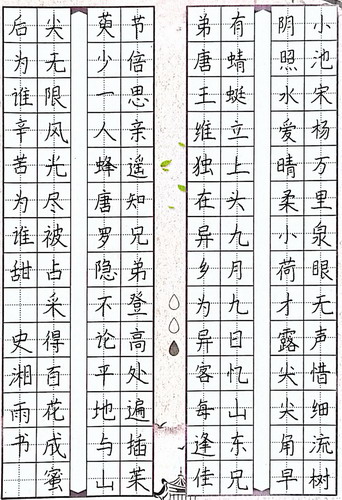 小池宋杨万里泉眼无声惜细流树
阴照水爱晴柔小荷才露尖尖角早
有蜻蜓立上头九月九日忆山东兄
弟唐王维独在异乡为异客每逢佳
节倍思亲遥知兄弟登高处遍插茱
萸少一人蜂唐罗隐不论平地与山
尖无限风光尽被占采得百花成蜜
后为谁辛苦为谁甜 史湘雨书